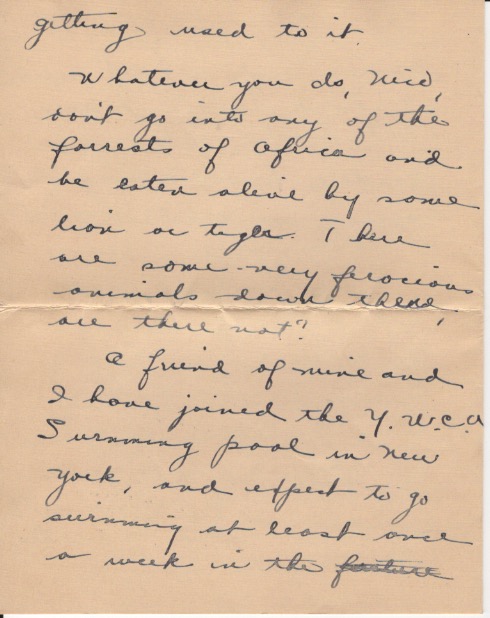 getting used to it.
Whatever you do, Nick,
don't go into any of the
forrests of Africa and
be eaten alive by some
lion or tiger. There
are some very ferocious
animals down there,
are there not?
A friend of mine and
I have joined the Y.W.C.A
Swimming pool in New
York, and expect to go
swimming at least once
a week in the